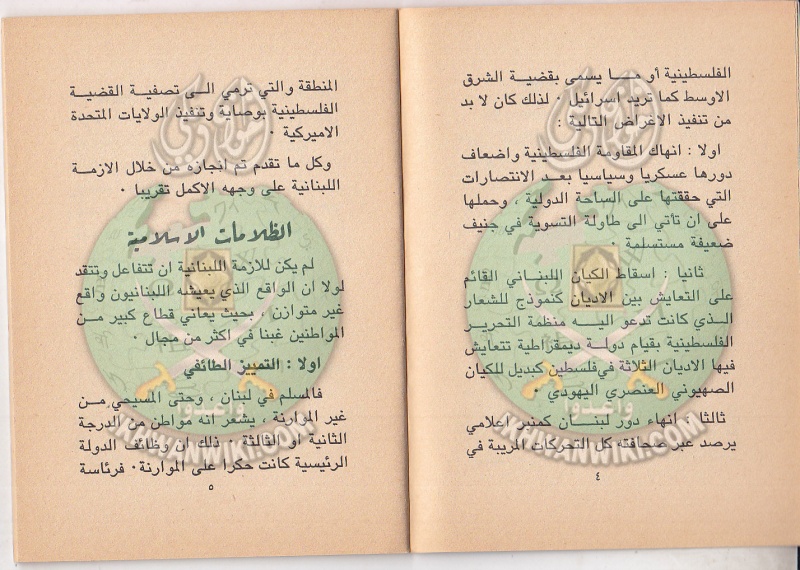 الفلسطينية أو مــا يسمى بقضية الشرق
الاوسط كما تريد اسرائيل ٠ لذلك كان لا بد
من تنفيذ الاغراض التالية :
اولا : انهاك المقاومة الفلسطينية واضعاف
دورها عسكريا وسياسيا بعد الانتصارات
التي حققتها على الساحة الدولية ، وحملها
على ان تأتي الى طاولة التسوية في جنيف
ضعيفة مستسلمة ٠
ثانيا : اسقاط الكيان اللبناني القائم
على التعايش بين الاديان كنموذج للشعار
الـذي كانت تدعو اليـه منظمة التحريـر
الفلسطينية بقيام دولـة ديمقراطية تتعايش
فيها الاديان الثلاثة في فلسطين كبديل للكيان
الصهيوني العنصري اليهودي ٠
ثالثا : انهاء دور لبنــان كمنبر اعلامي
يرصد عبر صحافته كل التحركات المريبة في
٤
المنطقة والتي ترمي الـى تصفيـة القضية
الفلسطينية بوصاية وتنفيذ الولايات المتحدة
الاميركية ٠
وكل ما تقدم تم انجازه من خلال الازمـة
اللبنانية على وجهه الاكمل تقريبا ٠
الظلامات الاسلامية
لم يكن للازمة اللبنانية ان تتفاعل وتتقد
لولا ان الواقع الذي يعيشه اللبنانيون واقع
غير متوازن ، بحيث يعاني قطاع كبير مـن
المواطنين غبنا في اكثر من مجال ٠
اولا : التمييز الطائفي
فالمسلم في لبنان ، وحتى المسيحي مـن
غير الموارنة ، يشعر انه مواطن من الدرجة
الثانية او الثالثة ٠ ذلك ان وظائف الدولة
الرئيسية كانت حكرا على الموارنة٠ فرئاسة
٥
واعدوا
IKHWANWIKI.COM
واعدوا
IKHWANWIKI.COM